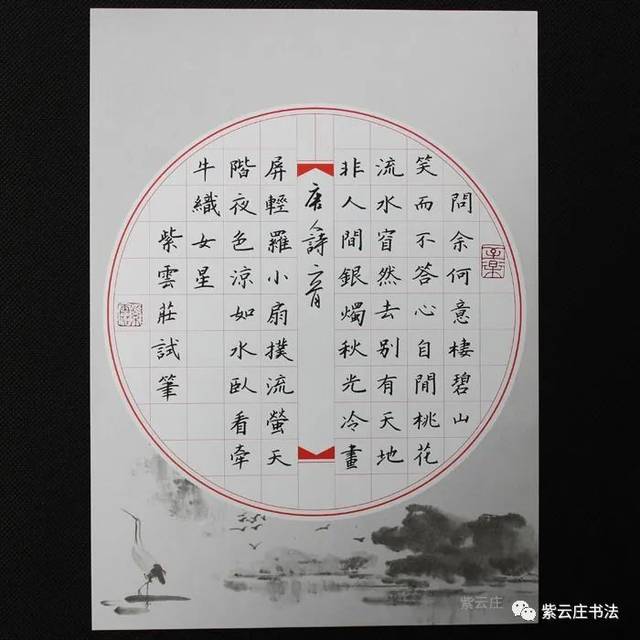 問余何意棲碧山
笑而不答心自閒桃花
流水窅然去别有天地
非人間銀燭秋光冷畫
唐人詩二首
屏輕羅小扇撲流螢天
階夜色涼如水臥看牽
牛織女星
紫雲莊試筆
紫云庄
紫云庄书法